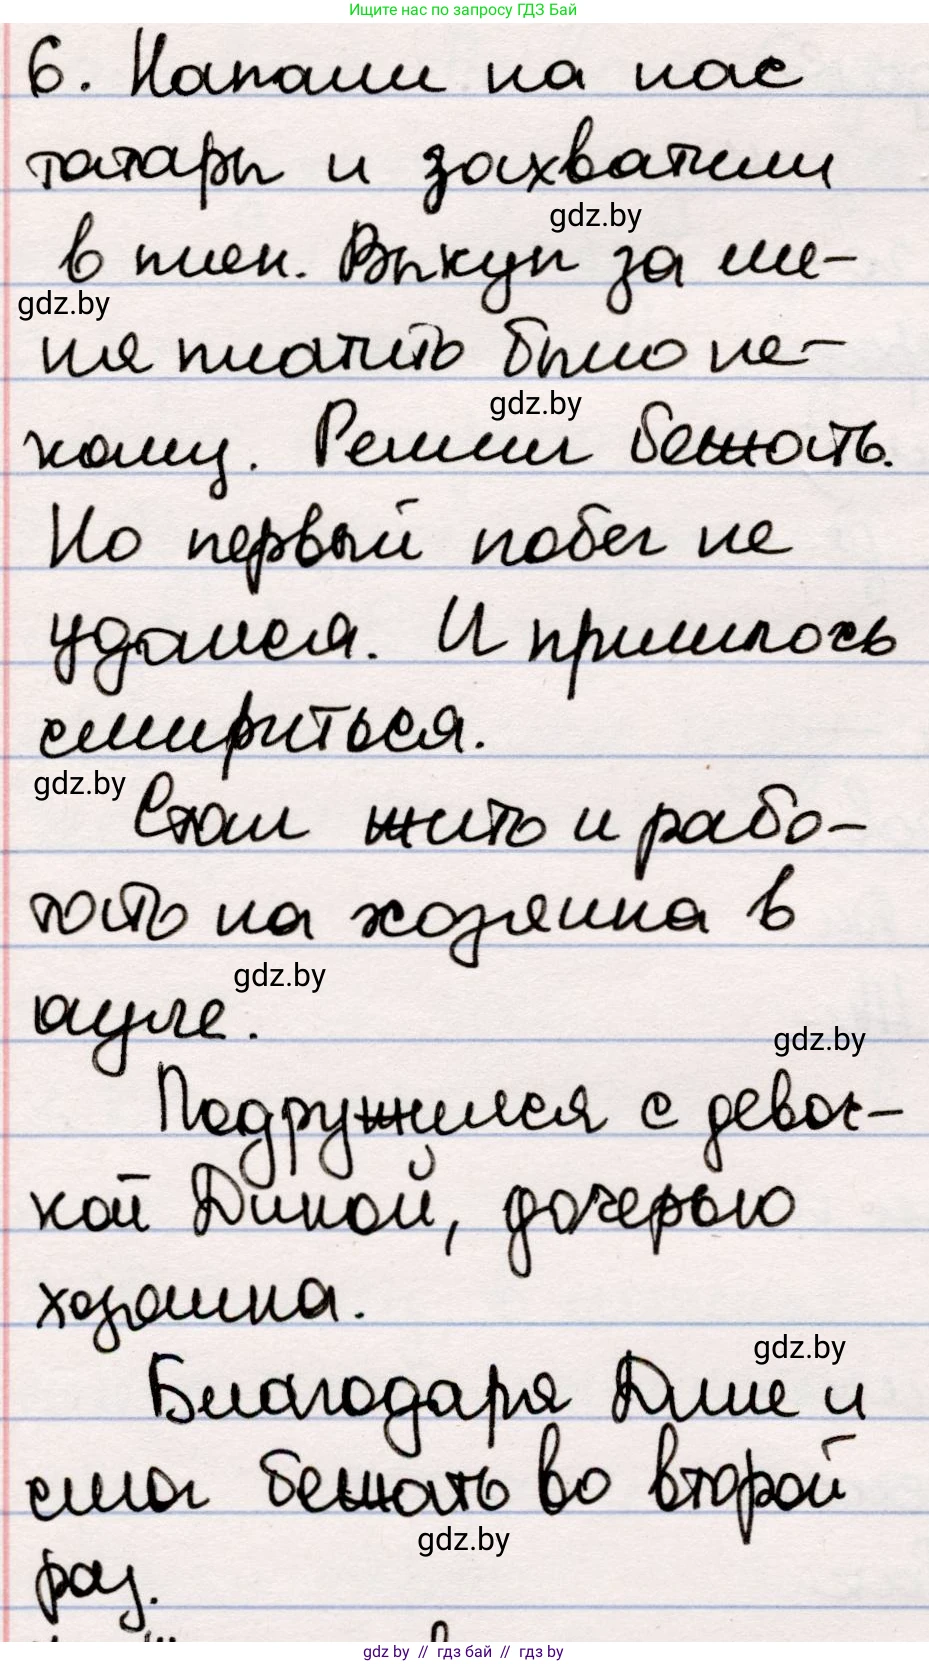 Ищите нас по запросу ГДЗ Бай
6. Напали на нас
татары и захватили
gdz.by
в плен. Выкуп за ме-
gdz.by
ня платить было не-
gdz.by
кому. Решил бежать.
Но первый побег не
удался. И пришлось
смириться.
gdz.by
Стал жить и рабо-
тать на хозяина в
gdz.by
ауле.
gdz.by
Подружился с девоч-
кой Диной, дочерью
хозяина.
gdz.by
Благодаря Дине и
смог бежать во второй
gdz.by
раз.
gdz.by // гдз бай // гдз by